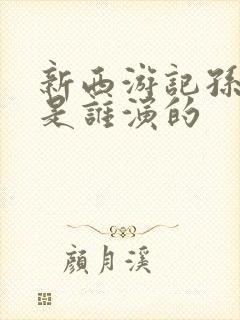 新西游記孫
是誰演的
顏月溪